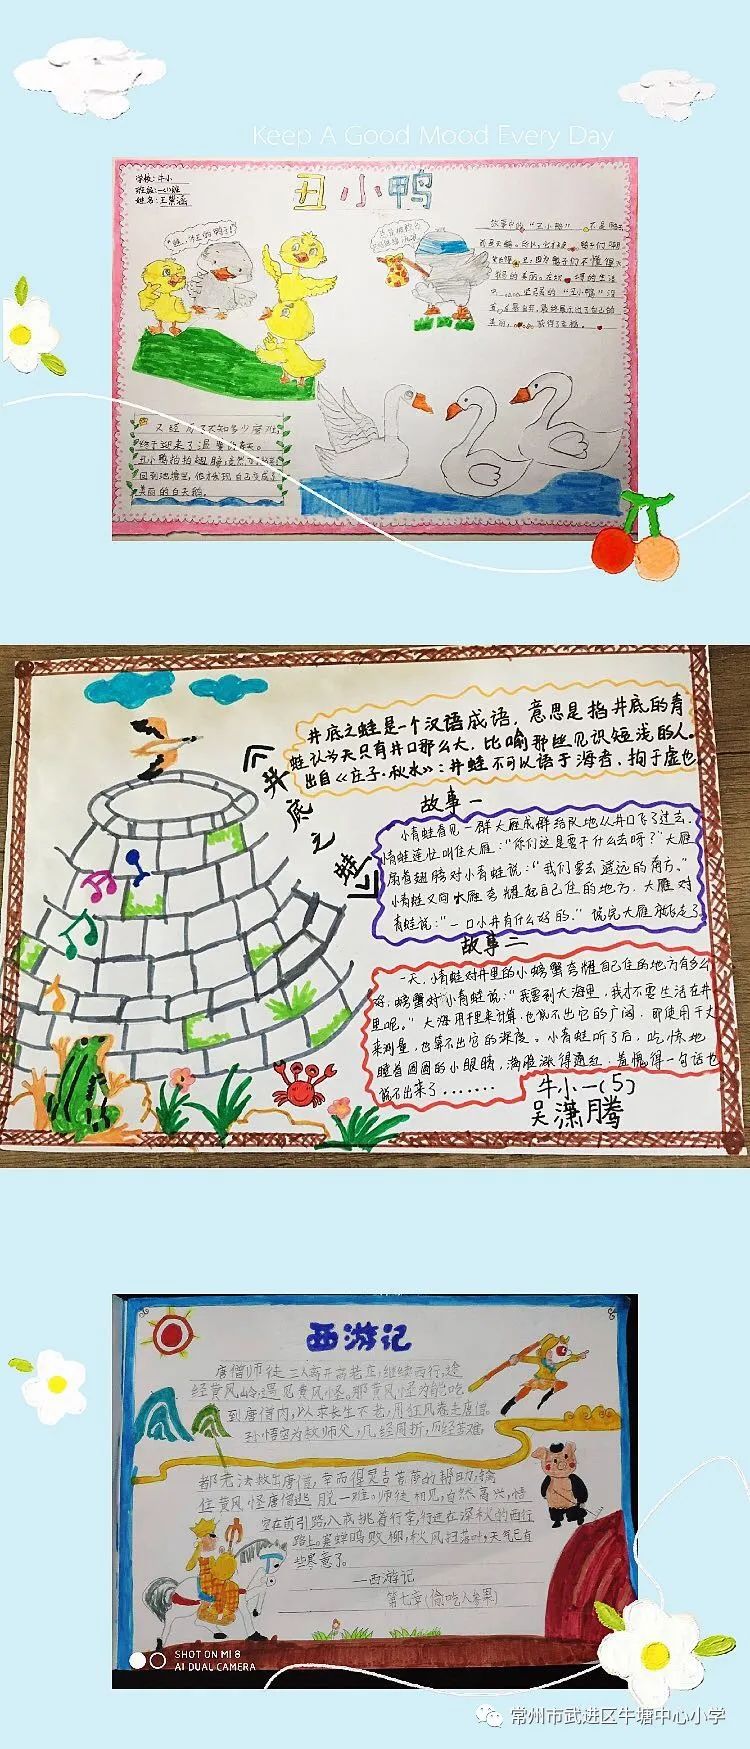 Keep A Good Mood Every Day
学校:牛小
姓名:王
丑小鸭
故事中的"丑小鸭" 不是鸭
又经历了不知多少磨难,
终于迎来了温暖的春天。
丑小鸭拍拍翅膀,
回到池塘里,他才发现自己变成了
美丽的白天鹅。
《井底之蛙》
井底之蛙是一个汉语成语,意思是指井底的青
蛙认为天只有井口那么大,比喻那些见识短浅的人。
出自《庄子·秋水》:井蛙不可以语于海者,拘于虚也。
故事一
小青蛙看见一群大雁成群结队地从井口飞了过去,
小青蛙连忙叫住大雁:"你们这是要干什么去呀?"大雁
扇着翅膀对小青蛙说:"我们要去遥远的南方。"
小青蛙又向大雁夸耀起自己住的地方,大雁对
青蛙说:"一口小井有什么好的。"说完大雁就飞走了
故事二
一天,小青蛙对井里的小螃蟹夸耀自己住的地方有多么
好,螃蟹对小青蛙说:"我要到大海里,我才不要生活在井
里呢。"大海用千里来计算,也说不出它的广阔,即使用千丈
来测量,也算不出它的深度。小青蛙听了后,吃惊地
瞪着圆圆的小眼睛,满脸涨得通红,羞愧得一句话也
说不出来了.......
牛小一(5)
吴潇腾
西游记
唐僧师徒三人离开高老庄,继续西行,途
经黄风岭,遇见黄风怪,那黄风怪为能吃
到唐僧肉,以求长生不老,用狂风卷走唐僧。
孙悟空为救师父,几经周折,历经苦难,
都无法救出唐僧,幸而得灵吉菩萨的帮助,擒
住黄风怪唐僧逃脱一难。师徒相见,自然高兴,悟
空在前引路,八戒挑着行李,行进在深秋的西行
路上。寒蝉鸣败柳,秋风扫落叶,天气已有
些寒意了。
—西游记
第七章(偷吃人参果)
SHOT ON MI 8
AI DUAL CAMERA
常州市武进区牛塘中心小学